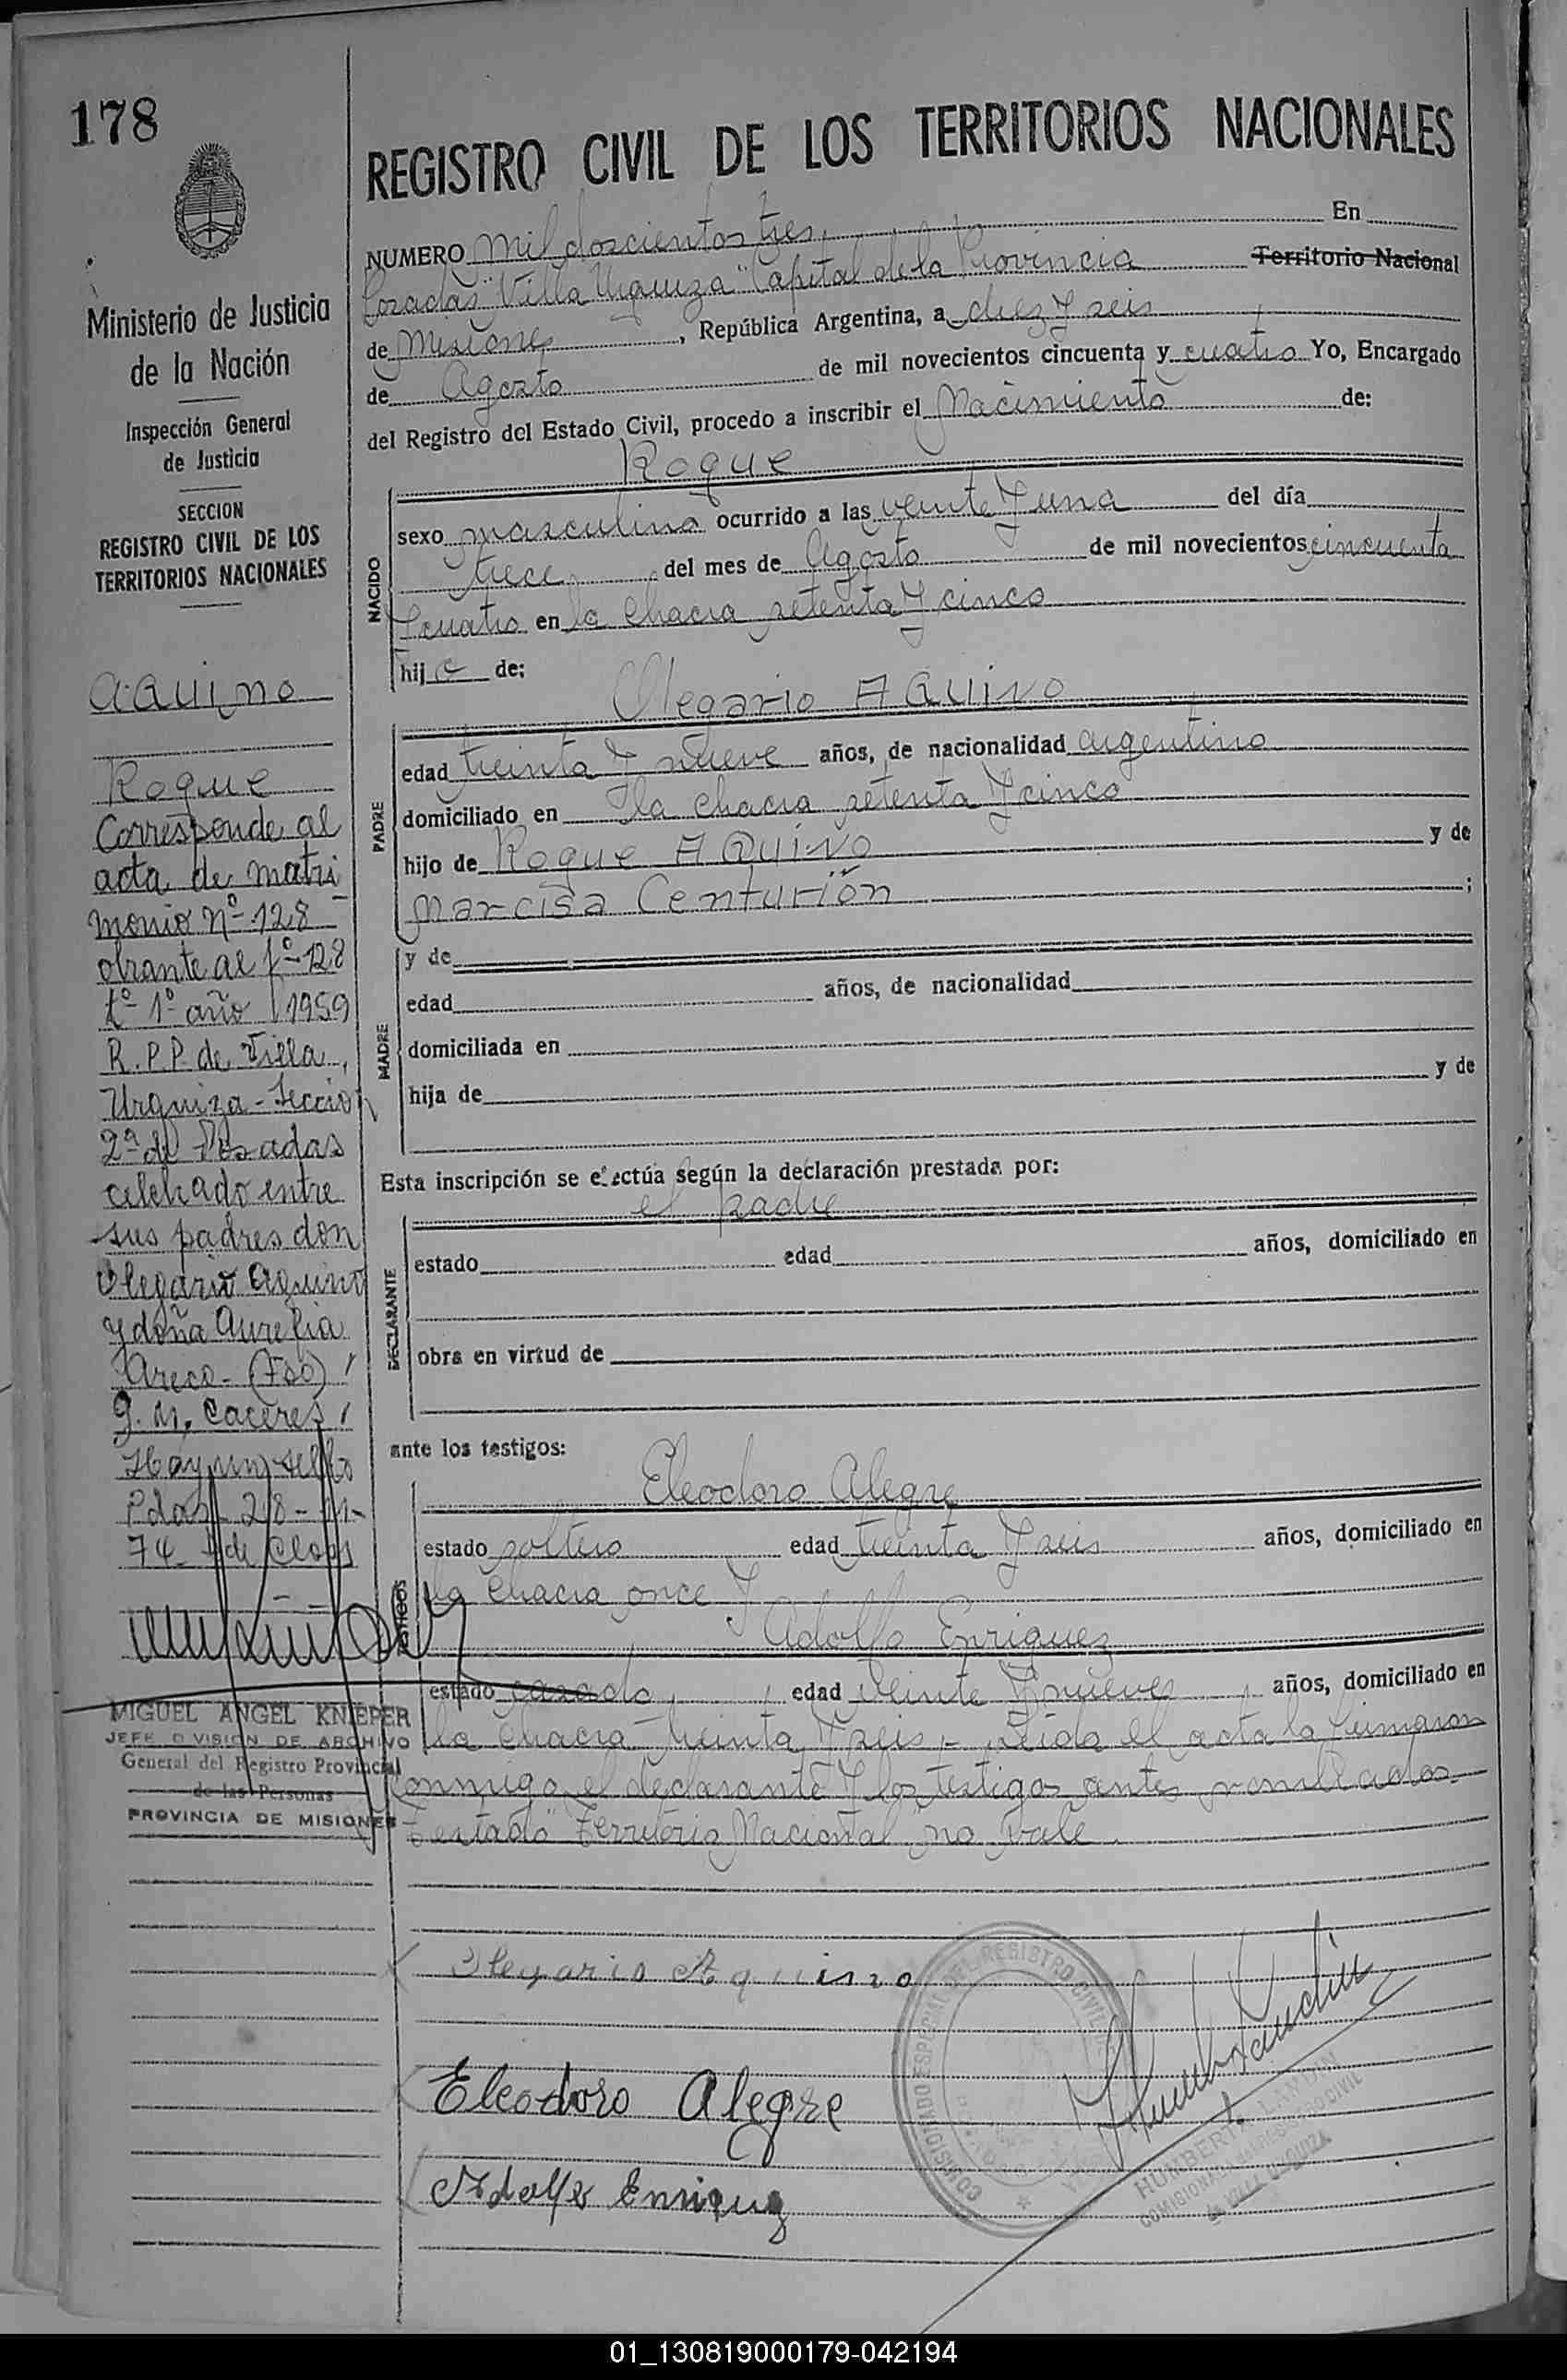 178
Ministerio de Justicia
de la Nación
Inspección General
de Justicia
SECCION
REGISTRO CIVIL DE LOS
TERRITORIOS NACIONALES
Aquino
Roque
Corresponde al
acta de matri
monio nº 128
obrante al fº 128
tº 1º año 1959
R.P.P. de Villa
Urquiza - Sección
2ª de Posadas
celebrado entre
sus padres don
Olegario Aquino
y doña Aurelia
Areco - (Fdo)
G. M. Caceres
Hay un sello
Pdas 28 - 11 -
74
MIGUEL ANGEL KNIEPER
JEFE DIVISION DE ARCHIVO
General del Registro Provincial
de las Personas
PROVINCIA DE MISIONES
REGISTRO CIVIL DE LOS TERRITORIOS NACIONALES
NUMERO Mil doscientos tres En
Posadas "Villa Urquiza" Capital de la Provincia Territorio Nacional
de Misiones, República Argentina, a diez y seis
de Agosto de mil novecientos cincuenta y cuatro Yo, Encargado
del Registro del Estado Civil, procedo a inscribir el Nacimiento de:
Roque
NACIDO
sexo masculino ocurrido a las veinte y una del día
trece del mes de Agosto de mil novecientos cincuenta
y cuatro en la chacra setenta y cinco
hijo de:
Olegario AQUINO
PADRE
edad treinta y nueve años, de nacionalidad argentino
domiciliado en la chacra setenta y cinco
hijo de Roque AQUINO y de
Narcisa Centurión ;
MADRE
y de
edad años, de nacionalidad
domiciliada en
hija de y de
Esta inscripción se efectúa según la declaración prestada por:
el padre
DECLARANTE
estado edad años, domiciliado en
obra en virtud de
ante los testigos:
Eleodoro Alegre
TESTIGOS
estado soltero edad treinta y seis años, domiciliado en
la chacra once y
Adolfo Enriquez
estado casado, edad veinte y nueve años, domiciliado en
la chacra treinta y seis - Leida el acta la firmaron
conmigo el declarante y los testigos antes nombrados
Testado "Territorio Nacional" no vale
Olegario Aquino
Eleodoro Alegre
Adolfo Enriquez
COMISIONADO ESPECIAL DEL REGISTRO CIVIL
HUMBERTO LANDIN
COMISIONADO del REGISTRO CIVIL
de VILLA URQUIZA
01_130819000179-042194